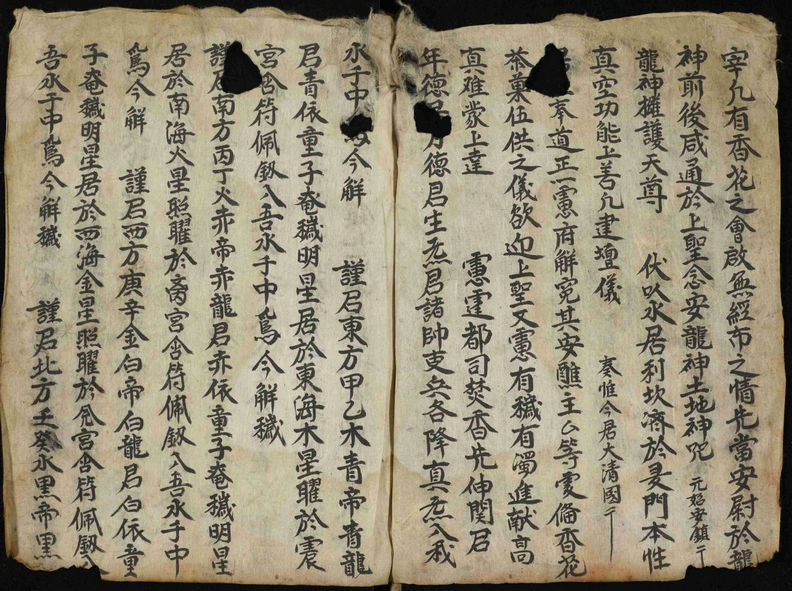 宰凢有香花之會啟無經布之情先當安尉於龍
神前後咸通於上聖念安龍神土地神咒 元始安鎮
龍神擁護天尊 伏以水居利坎濟於旻門本性
真空功能上善凢建壇儀 奏惟今居大清國
奉道正一慮府解冤其安醮主厶等處俻香花
茶菓伍供之儀欲迎上聖又慮有穢有濁進献高
真难蒙上達 慮霆都司焚香先伸関召
年德 月德君生炁君諸帥吏兵各降真炁入我
水于中 今解 謹召東方甲乙木青帝青龍
君青依童子奄穢明星居於東海木星曜於震
宮含符佩釼入吾水于中爲今解穢
謹召南方丙丁火赤帝赤龍君赤依童子奄穢明星
居於南海火星照曜於 宮含符佩釼入吾水于中
爲今解 謹召西方庚辛金白帝白龍君白依童
子奄穢明星居於西海金星照曜於兊宮含符佩釼
吾水于中爲今解穢 謹召北方壬癸水黑帝黑